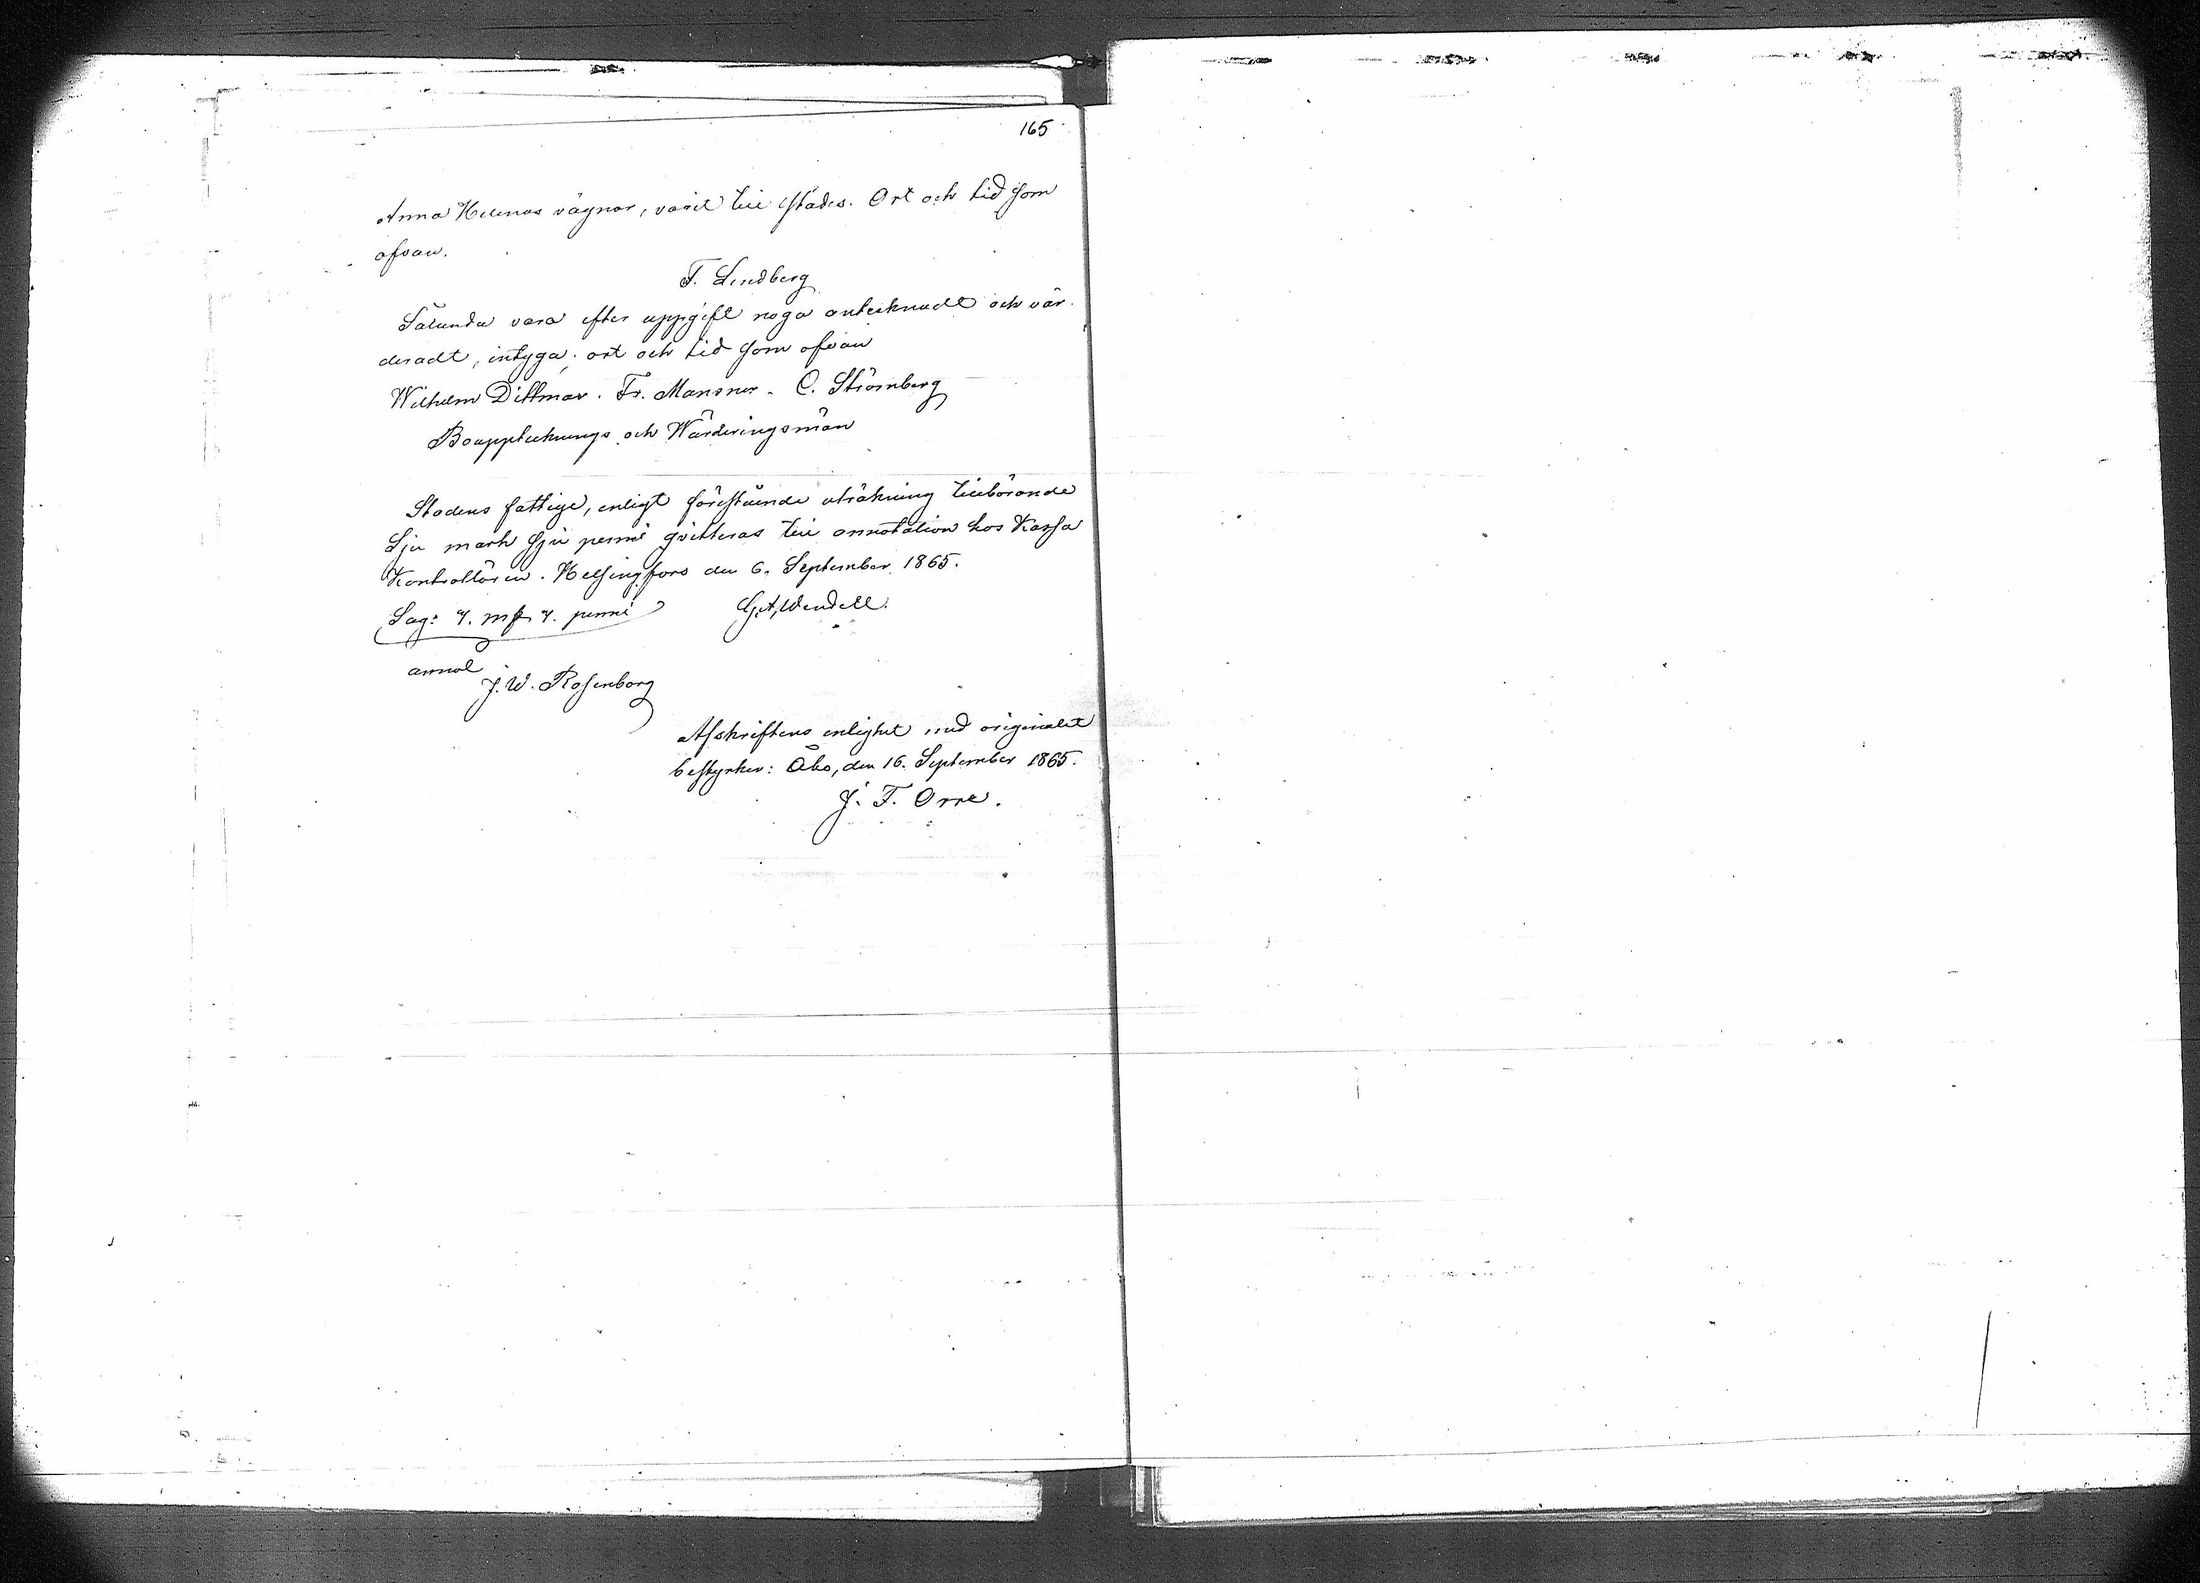 165
Anna Helenas vägnar, varit till städes. Ort och tid som
ofvan.
F. Lindberg
Sålunda vara efter uppgift noga antecknadt och vär
deradt, intyga; ort och tid som ofvan
Wilhelm Dittmar. Fr. Mansner. C. Strömberg
Bouppteknings och Wärderingsmän
Stadens fattige, enligt förestående uträkning tillbörande
Sju mark sju penni qvitteras till annotation hos Kassa
Kontrollören. Helsingfors den 6. September 1865.
Säg: 7. mk 7. penni G. A. Wendell.
annot
J. W. Rosenborg
Afskriftens enlighet med originalet
bestyrker: Åbo, den 16. September 1865.
J. F. Orre.